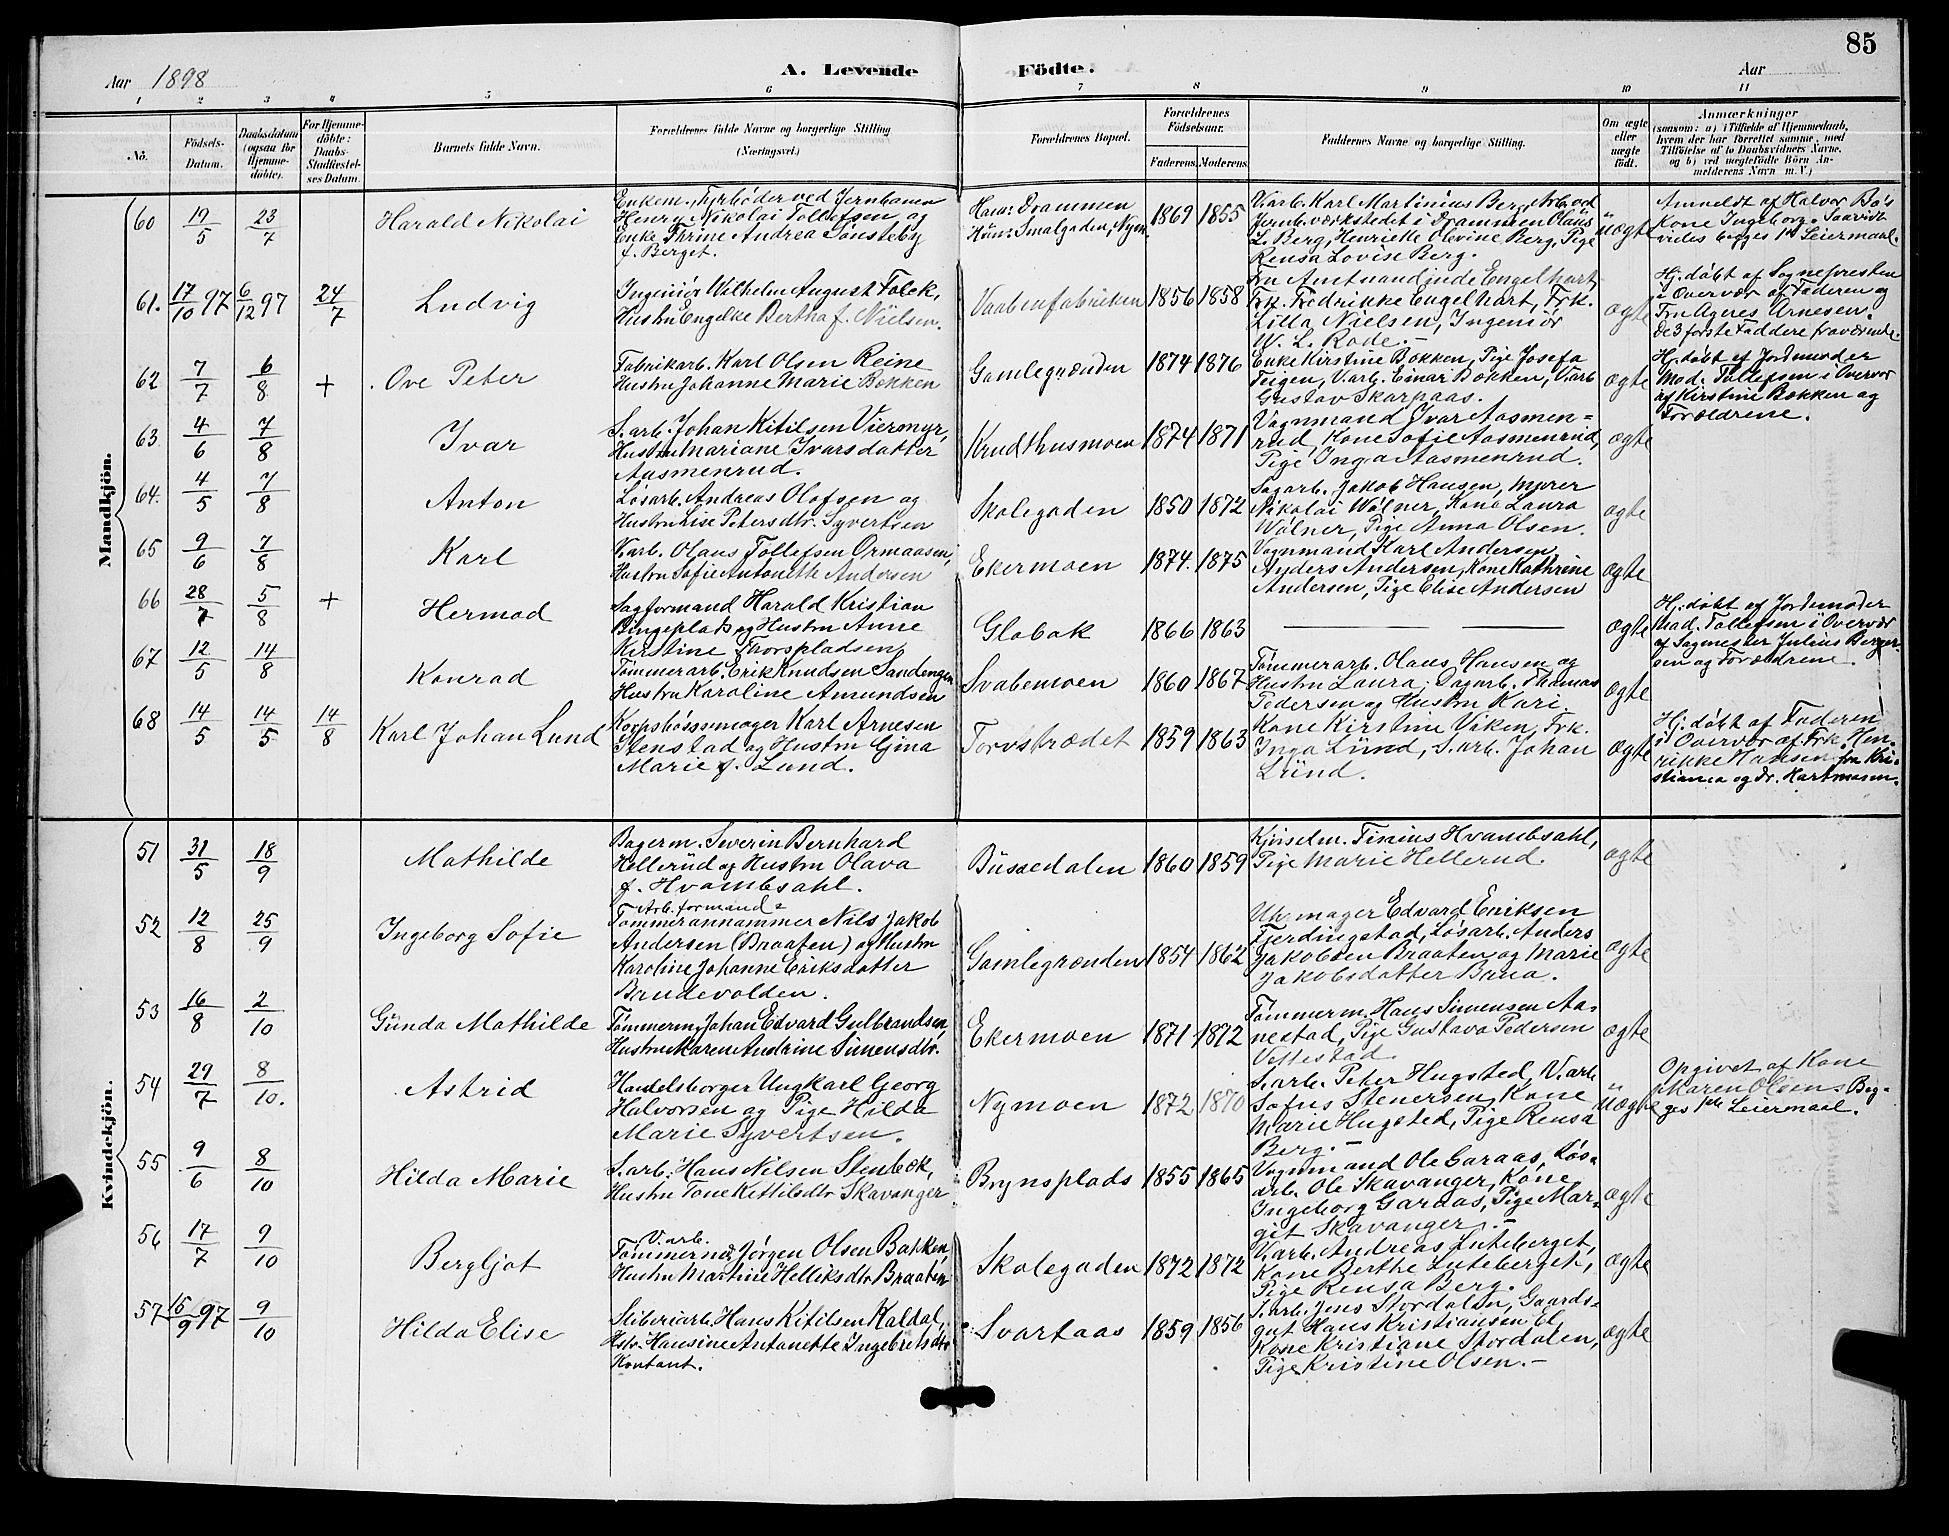 85
Aar 1898
A. Levende Födte.
Aar
1 2 3 4 5 6 7 8 9 10 11
No.
Födsels-Datum.
Daabsdatum (ogsaa for Hjemme-döbte).
For Hjemme-döbte: Daabs-Stadfæstel-ses Datum.
Barnets fulde Navn.
Forældrenes fulde Navne og borgerlige Stilling (Næringsvei.)
Forældrenes Bopæl.
Forældrenes Födselsaar.
Faderens. Moderens.
Faddernes Navne og borgerlige Stilling.
Om ægte eller uægte födt.
Anmærkninger
(saasom: a) i Tilfælde af Hjemmedaab,
hvem der har forrettet samme, med
Tilföielse af to Daabsvidners Navne,
og b) ved uægtefödte Börn An-
melderens Navn m. V.)
Mandkjön.
60 19/5 23/7 Harald Nikolai
Enkem., Fyrbøder ved Jernbanen
Henry Nikolai Tollefsen og
Enke Thrine Andrea Sønsteby
f. Berget.
Ham: Drammen
Hun: Smalgaden, Nym.
1869 1855
V.arb. Karl Martinius Berg, Arb. ved
Jernb. værkstedet i Drammen Olaus
L. Berg, Henriette Olevine Berg, Pige
Rensa Lovise Berg.
uægte
Anmeldt af Halvor Bø's
Kone Ingeborg. Saavidt
vides begges 1ste Leiermaal.
61. 17/10 97 6/12 97 24/7 Ludvig
Ingeniør Wilhelm August Folck,
Hustru Engelke Bertha f. Nielsen.
Vaabenfabriken 1856 1858
Fru Amtmandinde Engelhart,
Frk. Fredrikke Engelhart, Frk.
Lilla Nielsen, Ingeniør
W. L. Rode.-
ægte
Hj. døbt af Sognepresten
i Overvær af Faderen og
Fru Agnes Arnesen.
De 3 første Faddere fraværende.
62 7/7 6/8 + Ove Peter
Fabrikarb. Karl Olsen Reine
Hustru Johanne Marie Bekken
Gamlegrænden 1874 1876
Enke Kirstine Bekken, Pige Josefa
Teigen, V.arb. Einar Bekken, V.arb
Gustav Skarpaas.
ægte
Hj. døbt af Jordemoder
Mad. Tollefsen i Overvær
af Kirstine Bekken og
Forældrene.
63. 4/6 7/8 Ivar
S.arb. Johan Kitilsen Viermyr,
Hustru Mariane Ivarsdatter
Aasmenrud.
Krudthusmoen 1874 1871
Vognmand Ivar Aasmen=
rud, Kone Sofie Aasmenrud,
Pige Inga Aasmenrud.
ægte
64. 4/5 7/8 Anton
Løsarb. Andreas Olafsen og
Hustru Lise Petersdtr. Syvertsen
Skolegaden 1850 1872
Sagarb. Jakob Hansen, Murer
Nikolai Wølner, Kone Laura
Wølner, Pige Anna Olsen.
ægte
65 9/6 7/8 Karl
V.arb. Olaus Tollefsen Ormaasen,
Hustru Sofie Antonette Andersen
Ekermoen 1874. 1875
Vognmand Karl Andersen,
Anders Andersen, Kone Kathrine
Andersen, Pige Elise Andersen
ægte
66 28/7 5/8 + Hermod
Sagformand Harald Kristian
Bingeplads og Hustru Anne
Kirstine Thorspladsen
Glabak 1866 1863
ægte
Hj. døbt af Jordemoder
Mad. Tollefsen i Overvær
af Sagmester Julius Berger-
sen og Forældrene.
67 12/5 14/8 Konrad
Tømmerarb. Erik Knudsen Sandengen
Hustru Karoline Amundsen
Svabemoen 1860 1867
Tømmerarb. Olaus Hansen og
Hustru Laura, Dagarb. Thomas
Pedersen og Hustru Kari.
ægte
68 14/5 14/5 14/8 Karl Johan Lund
Korpsbøssemager Karl Arnesen
Stenstad og Hustru Gina
Marie f. Lund.
Torvstrædet 1859 1863
Kone Kirstine Viken, Frk.
Inga Lund, S.arb. Johan
Lund.
ægte
Hj. døbt af Faderen
i Overvær af Frk. Hen-
rikke Hansen fra Kri-
stiania og Dr. Hartmann.
Kvindekjön.
51 31/5 18/9 Mathilde
Bagerm. Severin Bernhard
Hellerud og Hustru Olava
f. Hvambsahl.
Bussedalen 1860 1859
Tinius Hvambsahl,
Pige Marie Hellerud.
ægte
52 12/8 25/9 Ingeborg Sofie
Arb. formand
Tømmerannammer Nils Jakob
Andersen (Braaten) og Hustru
Karoline Johanne Eriksdatter
Bandevolden.
Gamlegrænden 1854 1862
Uhrmager Edvard Eriksen
Fjerdingstad, Løsarb. Anders
Jakobsen Braaten og Marie
Jakobsdatter Bana.
ægte
53 16/8 2/10 Gunda Mathilde
Tømmerm. Johan Edvard Gulbrandsen,
Hustru Maren Andrine Simensdtr.
Ekermoen 1871 1872
Tømmerm. Hans Simensen Aa-
nestad, Pige Gustava Pedersen
Vettestad.
ægte
54 29/7 8/10. Astrid
Handelsborger Ungkarl Georg
Halvorsen og Pige Hilda
Marie Syvertsen.
Nymoen 1872 1870
S.arb. Peter Hugsted, V.arb
Sofus Stenersen, Kone
Marie Hugsted, Pige Rensa
Berg.-
uægte
Opgivet af Kone
Maren Olsen. Beg-
ges 1ste Leiermaal.
55 9/6 8/10 Hilda Marie
S.arb. Hans Nilsen Stenbæk,
Hustru Tone Kettilsdtr Skavanger
Brynsplads 1855 1865
Vognmand Ole Garaas, Løs-
arb. Ole Skavanger, Kone
Ingeborg Garaas, Pige Mar-
git Skavanger.-
ægte
56 17/7 9/10 Bergljot
V.arb.
Tømmerm. Jørgen Olsen Bakken,
Hustru Martine Helliksdtr Braaten
Skolegaden 1872 1872
V.arb. Andreas Luteberget,
Kone Berthe Luteberget,
Pige Rensa Berg.
ægte
57 15/9 97 9/10 Hilda Elise
Sliberiarb. Hans Kitilsen Kaldal,
Hstr. Hansine Antonette Ingebretsdtr
Kontant.
Svartaas 1859 1856
S.arb. Jens Stordalen, Gaards-
gut Hans Kristiansen El,
Kone Kristiane Stordalen,
Pige Kristine Olsen.-
ægte